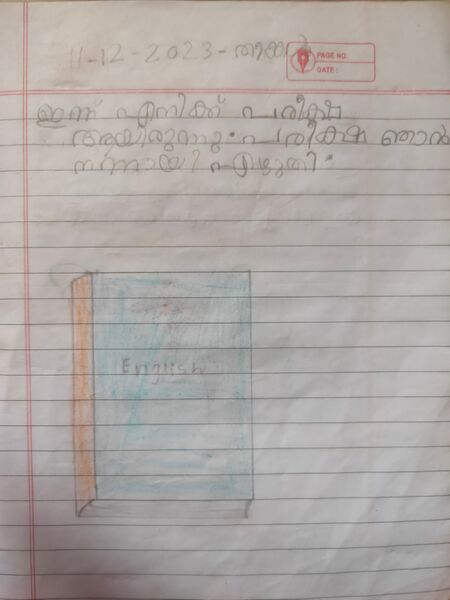 11-12-2023-തിങ്കൾ
PAGE NO.
DATE :
ഇന്ന് എനിക്ക് പരീക്ഷ
ആയിരുന്നു. പരീക്ഷ ഞാൻ
നന്നായി എഴുതി.
English